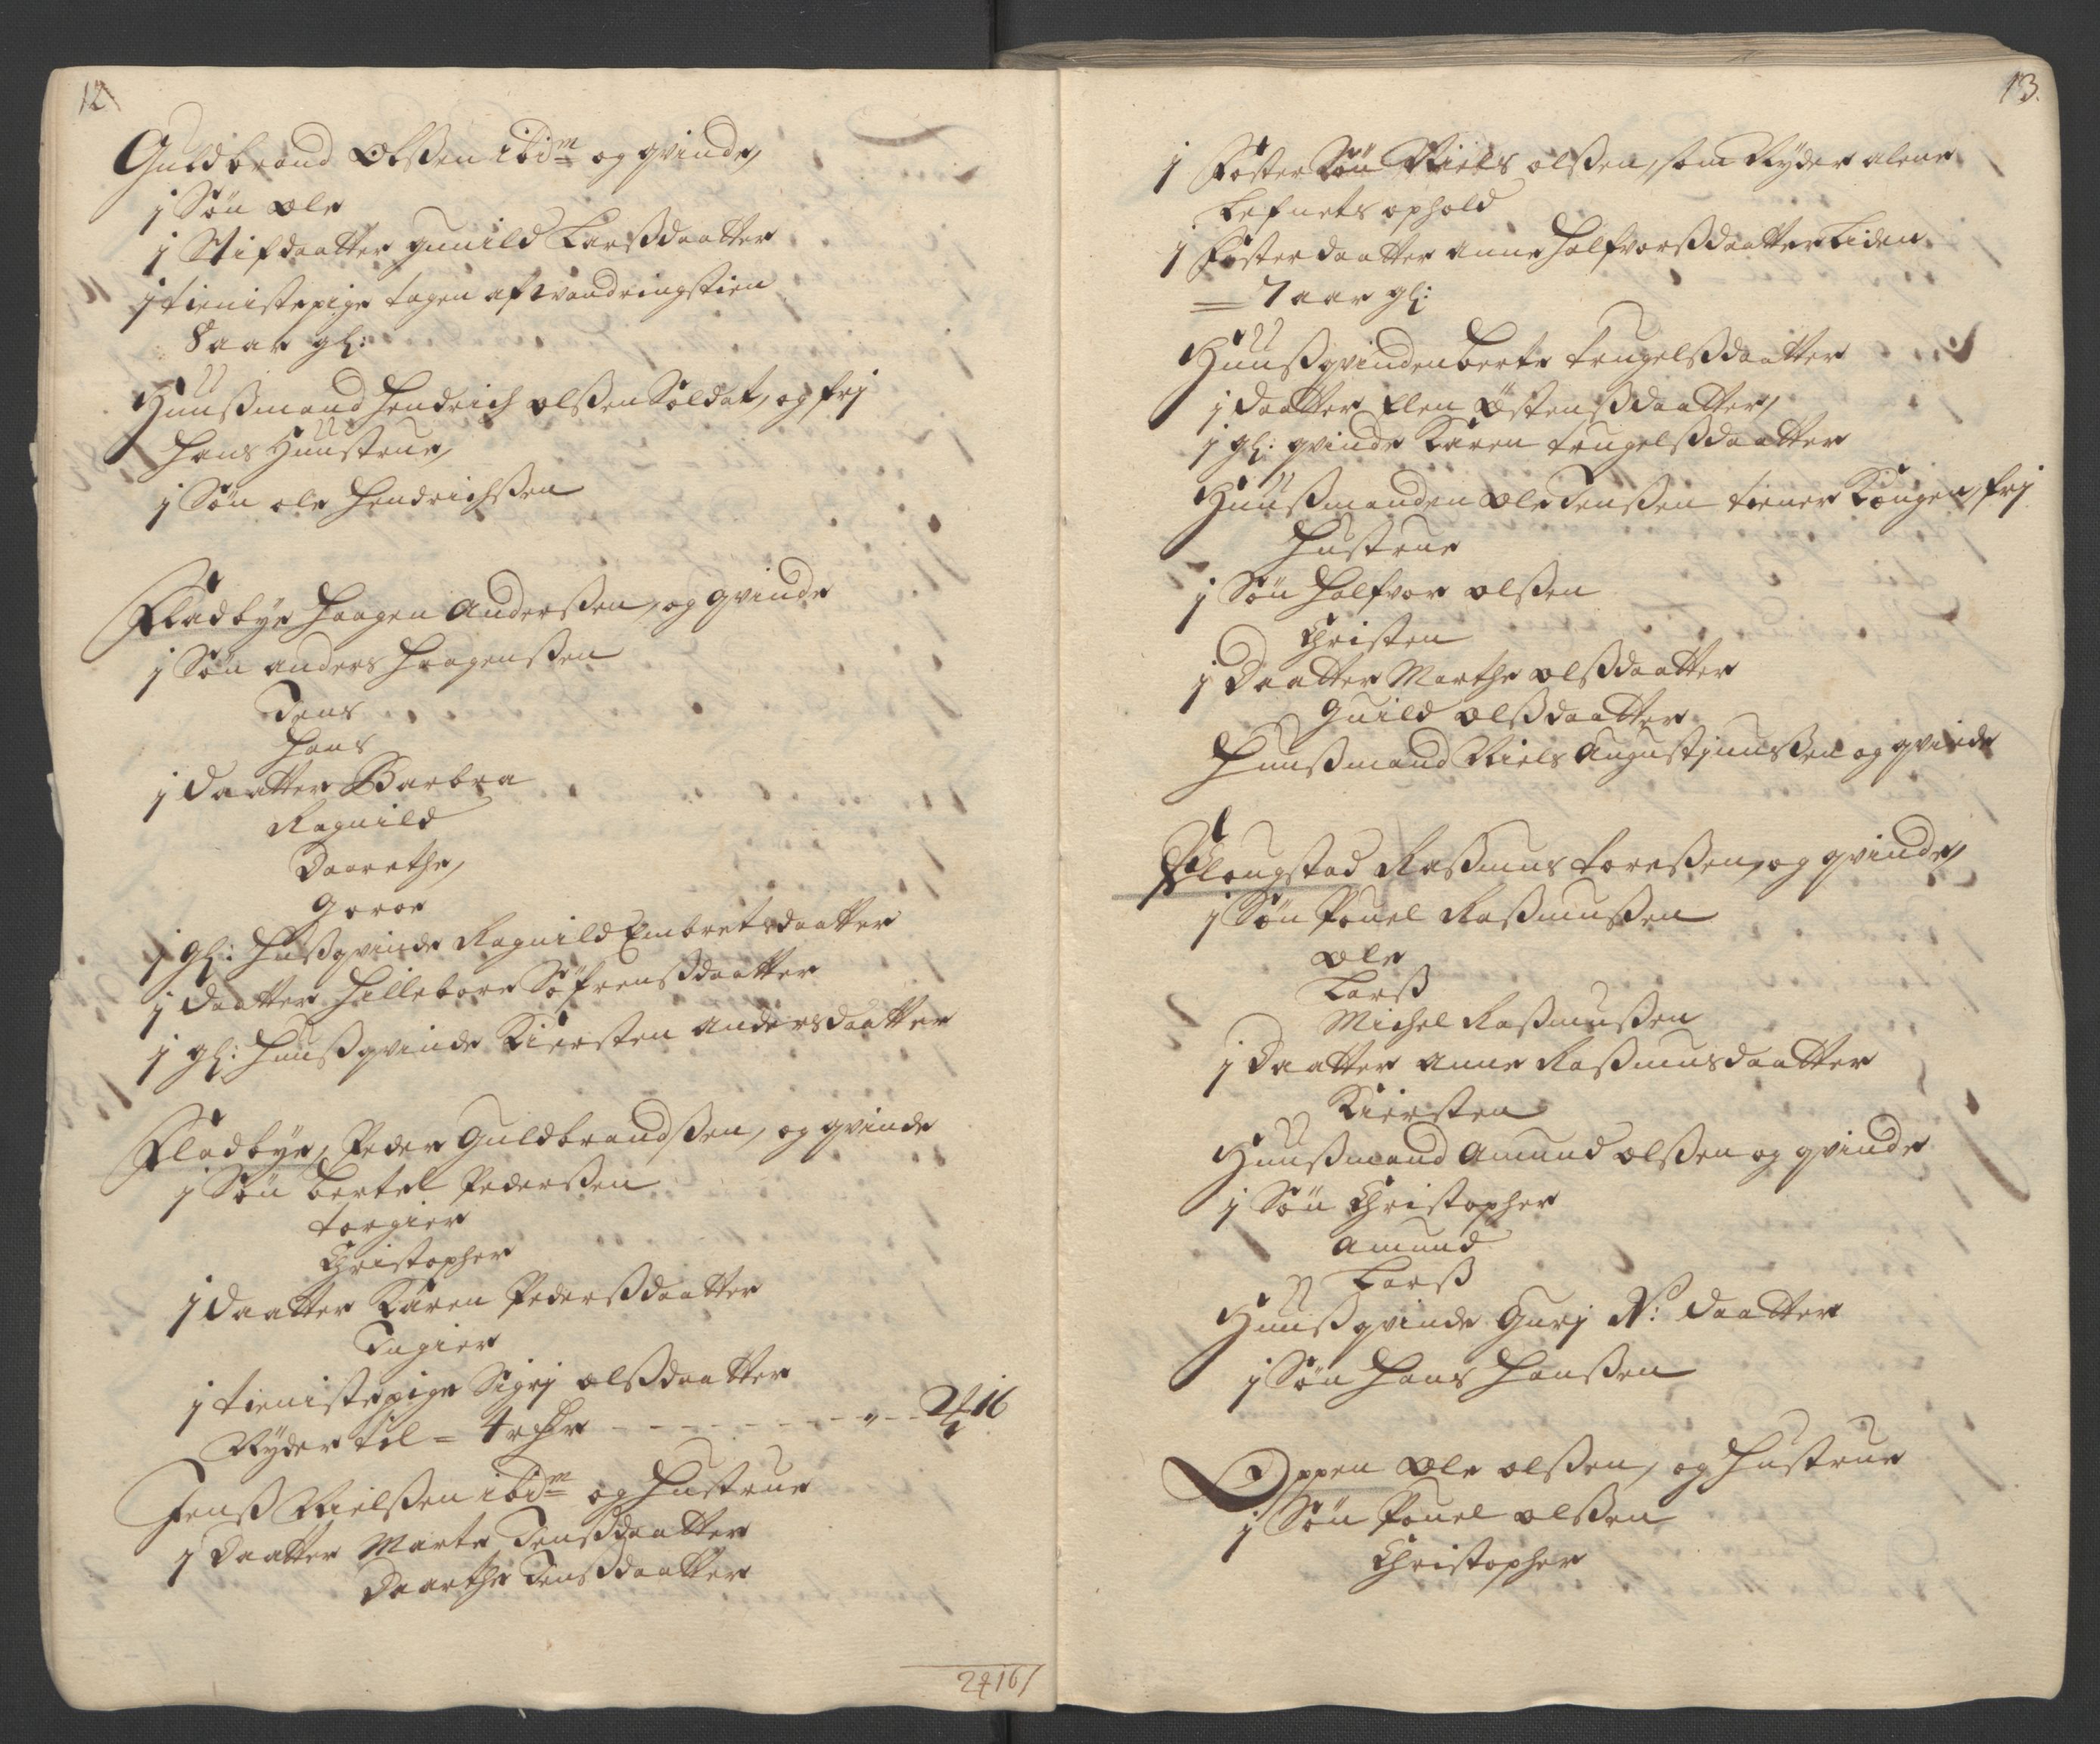 12
Guldbrand Olßen ibid^m og qvinde,
j Søn Ole
j Stifdaatter gunild Larßdaatter
j tienistepige tagen af wandringstien
8 aar gl:
Huußmand Hendrich olßen Soldat, og frj
Hans Huustrue,
j Søn ole Hendrichßen
Fladbye Haagen Anderßen, og qvinde
j Søn anders Haagenßen
Jens
Hans
j Daatter Barbra
Ragnild
Daarethe,
Goroe
j gl: Hußqvinde Ragnild Embretsdaatter
j daatter Hilleborr Søfrenßdaatter
j gl: Huußqvinde Kiersten andersdaatter
Fladbye, Peder Guldbrandßen, og qvinde
j Søn bertel Pederßen
torgier
Christopher
j Daatter Karen Pederßdaatter
Ingier
j tienistepige Sigrj olßdaatter
Ryder til = 4 rdr - - - - - - - - - " - - 2 16
Jenß Nielßen ibid^m og Hustrue
j Daatter Marte Jenßdaatter
Daarthe Jenßdaatter
2 16
13.
j Foster Søn Niels olßen, som Nyder alene
Lefnets ophold
j Fosterdaatter anne Halfvorßdaatter Liden
= 7 aar gl:
Huußqvinden berte trugelßdaatter
j daatter Elen Østenßdaatter,
j gl: qvinde Karen trugelßdaatter
Huußmanden Ole Jenßen tiener Kongen, frj
Hustrue
j Søn Halfvor olßen
Christen
j Daatter Marthe olßdaatter
Guild olßdaatter
Huußmand Niels Augustjnusßen og qvinde
Flougstad Raßmus toreßen, og qvinde,
j Søn Pouel Raßmußen
Ole
Larß
Michel Raßmußen
j Daatter anne Raßmusdaatter
Kiersten
Huußmand Amund olßen og qvinde
j Søn Christopher
Amund
Larß
Huußqvinde Gurj N: daatter
j Søn Hans Hanßen
Oppen Ole olßen, og Hustrue
j Søn Pouel olßen
Christopher